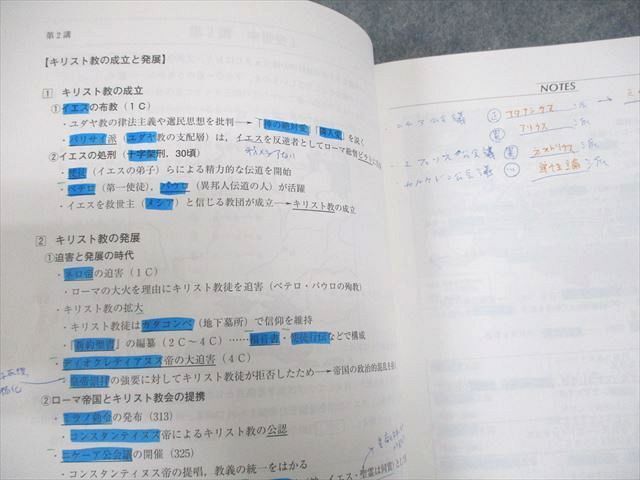 第2講
【キリスト教の成立と発展】
1 キリスト教の成立
①イエスの布教（1C）
・ユダヤ教の律法主義や選民思想を批判→「神の絶対愛」「隣人愛」を説く
・パリサイ派（ユダヤ教の支配層）は，イエスを反逆者としてローマ総督
②イエスの処刑（十字架刑，30頃）
・使徒（イエスの弟子）らによる精力的な伝道を開始
・ペテロ（第一使徒），パウロ（異邦人伝道の人）が活躍
・イエスを救世主（メシア）と信じる教団が成立→キリスト教の成立
2 キリスト教の発展
①迫害と発展の時代
・ネロ帝の迫害（1C）
・ローマの大火を理由にキリスト教徒を迫害（ペテロ・パウロの殉教）
・キリスト教の拡大
・キリスト教徒はカタコンベ（地下墓所）で信仰を維持
・「新約聖書」の編纂（2C～4C）……福音書・使徒行伝などで構成
・ディオクレティアヌス帝の大迫害（4C）
・皇帝崇拝の強要に対してキリスト教徒が拒否したため→帝国の政治的混乱を
②ローマ帝国とキリスト教会の提携
・ミラノ勅令の発布（313）
・コンスタンティヌス帝によるキリスト教の公認
・ニケーア公会議の開催（325）
・コンスタンティヌス帝の提唱，教義の統一をはかる
イエス・聖霊は同質）とし
NOTES
ニケーア公会議 正 アタナシウス 派 →
異 アリウス 派
エフェソス公会議 異 ネストリウス 派
カルケドン公会議 単性論 派